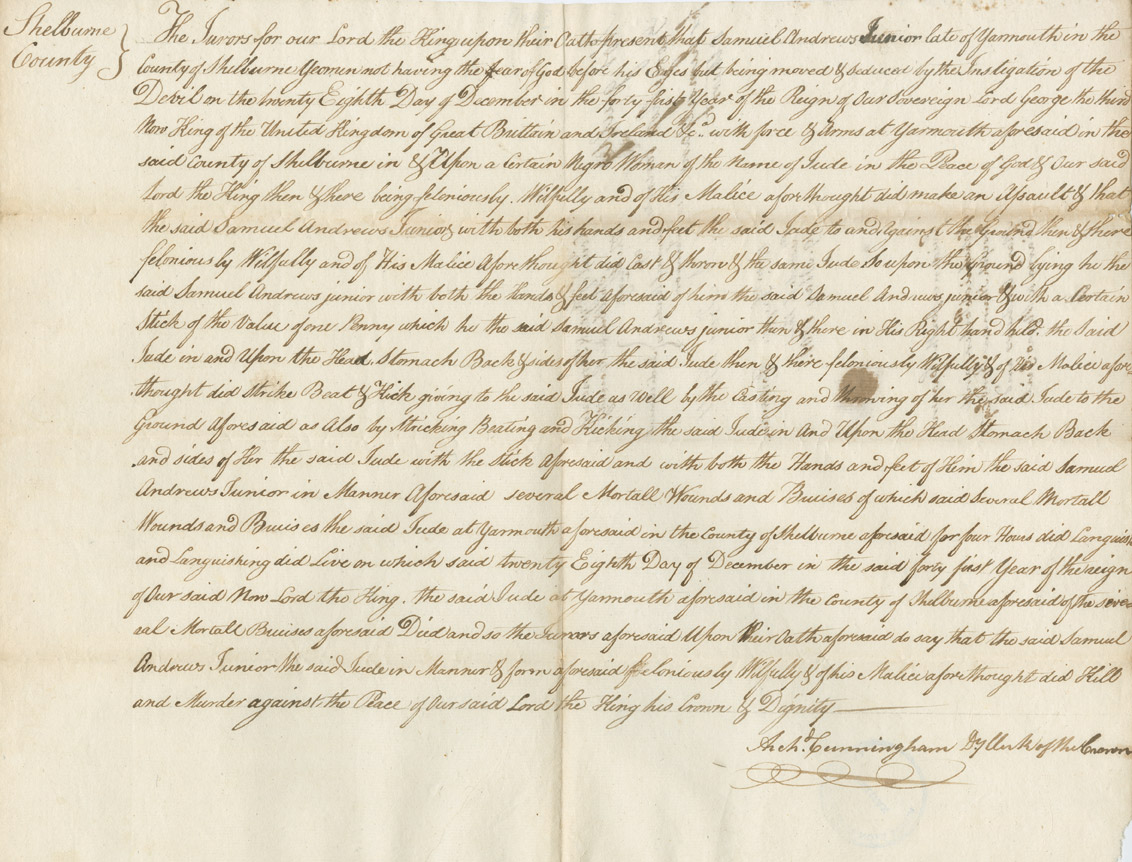 Shelburne
County
The Jurors for our Lord the King upon their Oath present that Samuel Andrews Junior late of Yarmouth in the
County of Shelburne Yeomen not having the fear of God before his Eyes but being moved & seduced by the Instigation of the
Devil on the twenty Eighth Day of December in the forty first Year of the Reign of Our Sovereign Lord George the third
Now King of the United Kingdom of Great Brittain and Ireland &c. with force & Arms at Yarmouth aforesaid in the
said County of Shelburne in & Upon a Certain Negro Woman of the Name of Jude in the Peace of God & Our said
Lord the King then & there being feloniously. Wilfully and of His Malice aforthought did make an Assault & that
the said Samuel Andrews Junior with both his hands and feet the said Jude to and against the Ground then & there
feloniously Wilfully and of His Malice Aforethought did Cast & thron & the same Jude So upon the Ground lying he the
said Samuel Andrews junior with both the Hands & feet aforesaid of him the said Samuel Andrews junior & with a Certain
Stick of the Value of one Penny which he the said Samuel Andrews junior then & there in His Right hand held. the Said
Jude in and Upon the Head Stomach Back & sides of her the said Jude then & there feloniously Wilfully & of his Malice afore
thought did Strike Beat & Kick giving to the said Jude as well by the Casting and throwing of her the said Jude to the
Ground Aforesaid as Also by Stricking Beating and Kicking the said Jude in And Upon the Head Stomach Back
and sides of Her the said Jude with the Stick Aforesaid and with both the Hands and feet of Him the said Samuel
Andrews Junior in Manner Aforesaid several Mortall Wounds and Bruises of which said Several Mortall
Wounds and Bruises the said Jude at Yarmouth aforesaid in the County of Shelburne aforesaid for four Hours did Languish
and Languishing did Live on which said twenty Eighth Day of December in the said forty first Year of the reign
of Our said Now Lord the King. the said Jude at Yarmouth aforesaid in the County of Shelburne aforesaid of the seve-
ral Mortall Bruises aforesaid Died and so the Jurrors aforesaid Upon their Oath aforesaid do say that the said Samuel
Andrews Junior the said Jude in Manner & form aforesaid feloniously Wilfully & of his Malice aforethought did Kill
and Murder against the Peace of Our said Lord the King his Crown & Dignity
Archd. Cunningham Dy Clerk of the Crown